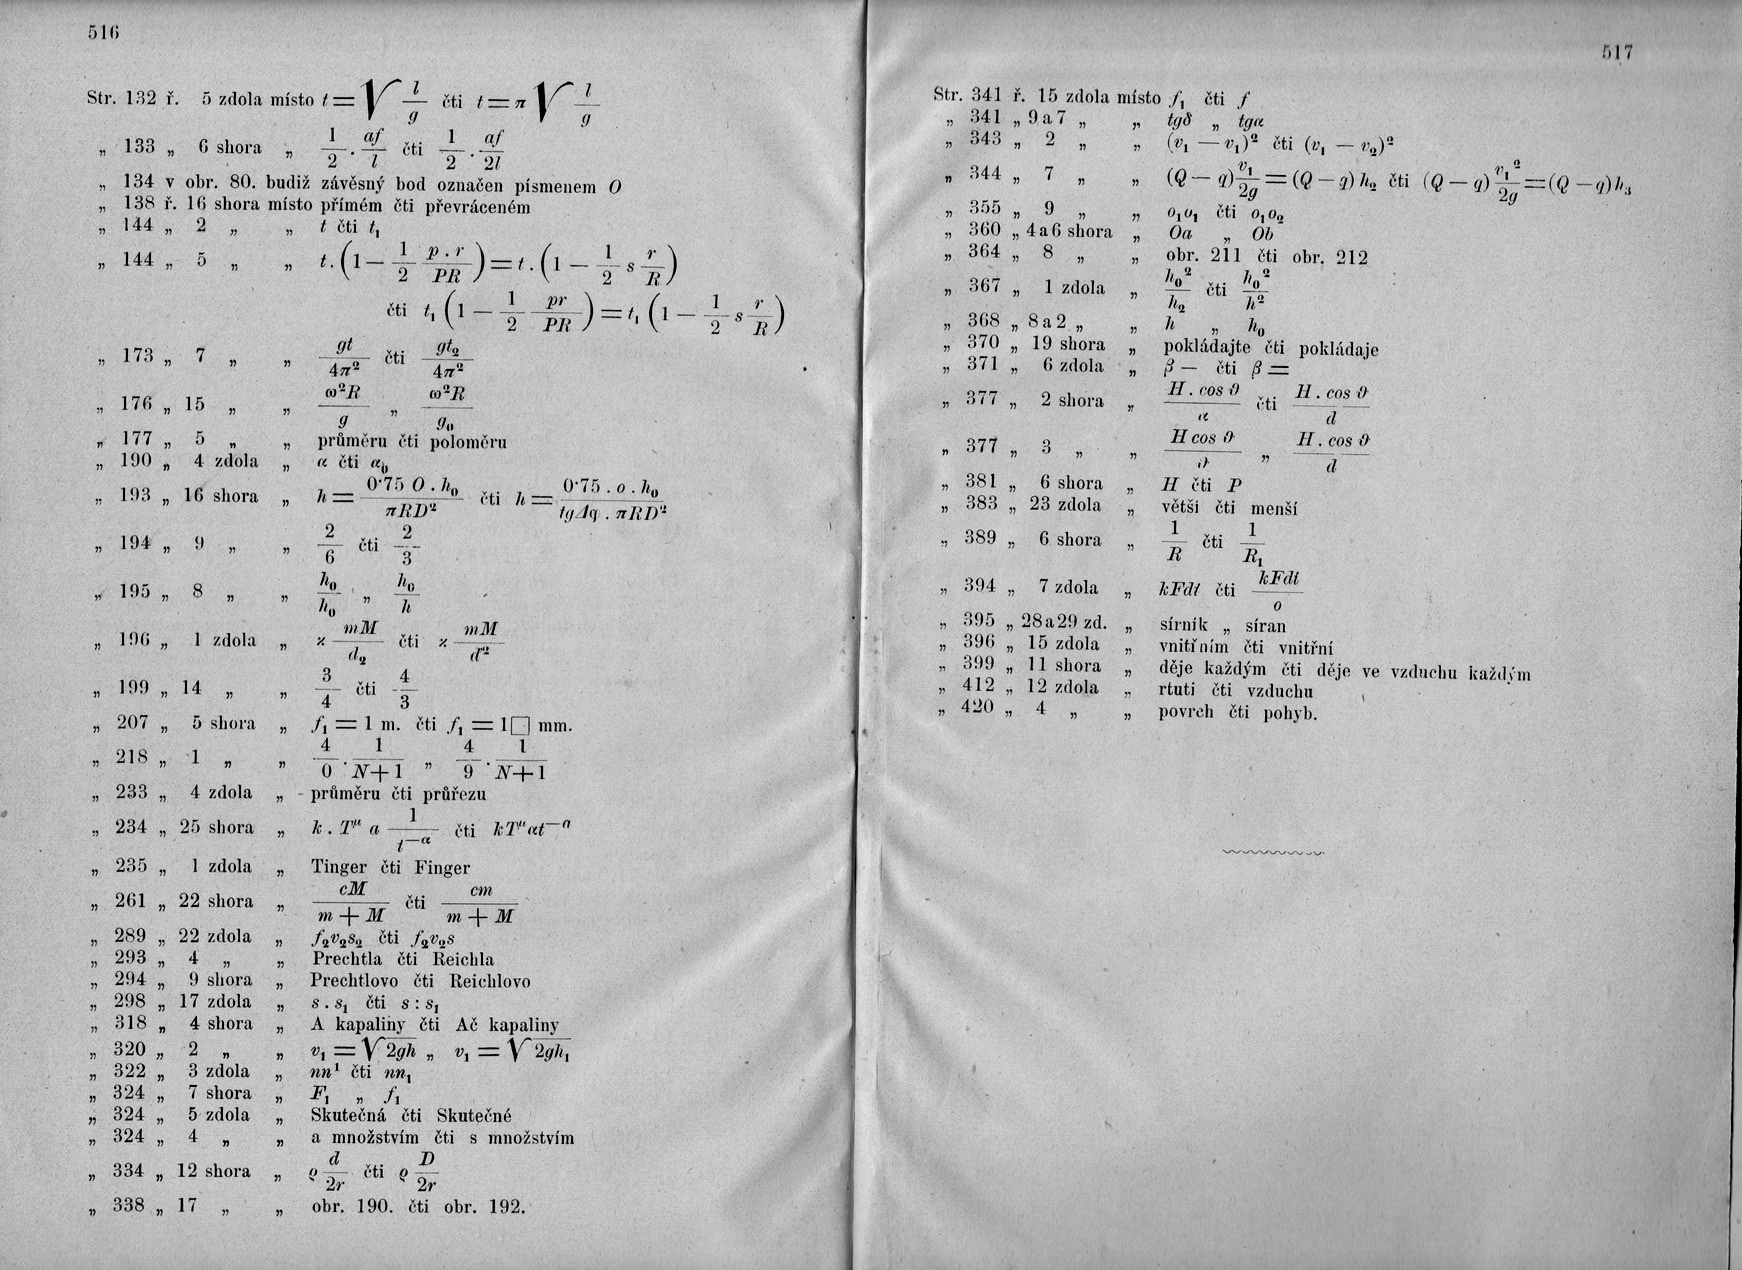 516
Str. 132 ř. 5 zdola místo t = √ l/g čti t = π √ l/g
„ 133 „ 6 shora „ 1/2 . af/l čti 1/2 . af/2l
„ 134 v obr. 80. budiž závěsný bod označen písmenem O
„ 138 ř. 16 shora místo přímém čti převráceném
„ 144 „ 2 „ „ t čti t₁
„ 144 „ 5 „ „ t . (1 — 1/2 p . r/PR) = t . (1 — 1/2 s r/R)
čti t₁ (1 — 1/2 pr/PR) = t₁ (1 — 1/2 s r/R)
„ 173 „ 7 „ „ gt/4π² čti gt₂/4π²
„ 176 „ 15 „ „ ω²R/g „ ω²R/g₀
„ 177 „ 5 „ „ průměru čti poloměru
„ 190 „ 4 zdola „ α čti α₀
„ 193 „ 16 shora „ h = 0·75 O . h₀/πRD² čti h = 0·75 . o . h₀/tgΔφ . πRD²
„ 194 „ 9 „ „ 2/6 čti 2/3
„ 195 „ 8 „ „ h₀/h₀ „ h₀/h
„ 196 „ 1 zdola „ ϰ mM/d₂ čti ϰ mM/d²
„ 199 „ 14 „ „ 3/4 čti 4/3
„ 207 „ 5 shora „ f₁ = 1 m. čti f₁ = 1□ mm.
„ 218 „ 1 „ „ 4/0 . 1/N+1 „ 4/9 . 1/N+1
„ 233 „ 4 zdola „ průměru čti průřezu
„ 234 „ 25 shora „ k . Tᵘ a 1/t⁻ᵅ čti kTᵘαt⁻ᵅ
„ 235 „ 1 zdola „ Tinger čti Finger
„ 261 „ 22 shora „ cM/m + M čti cm/m + M
„ 289 „ 22 zdola „ f₂v₂s₂ čti f₂v₂s
„ 293 „ 4 „ „ Prechtla čti Reichla
„ 294 „ 9 shora „ Prechtlovo čti Reichlovo
„ 298 „ 17 zdola „ s . s₁ čti s : s₁
„ 318 „ 4 shora „ A kapaliny čti Ač kapaliny
„ 320 „ 2 „ „ v₁ = √2gh „ v₁ = √2gh₁
„ 322 „ 3 zdola „ nn¹ čti nn₁
„ 324 „ 7 shora „ F₁ „ f₁
„ 324 „ 5 zdola „ Skutečná čti Skutečné
„ 324 „ 4 „ „ a množstvím čti s množstvím
„ 334 „ 12 shora „ ϱ d/2r čti ϱ D/2r
„ 338 „ 17 „ „ obr. 190. čti obr. 192.
517
Str. 341 ř. 15 zdola místo f₁ čti f
„ 341 „ 9 a 7 „ „ tgδ „ tgα
„ 343 „ 2 „ „ (v₁ — v₁)² čti (v₁ — v₂)²
„ 344 „ 7 „ „ (Q — q) v₁/2g = (Q — q) h₂ čti (Q — q) v₁²/2g = (Q — q) h₃
„ 355 „ 9 „ „ o₁o₁ čti o₁o₂
„ 360 „ 4 a 6 shora „ Oa „ Ob
„ 364 „ 8 „ „ obr. 211 čti obr. 212
„ 367 „ 1 zdola „ h₀²/h₂ čti h₀²/h²
„ 368 „ 8 a 2 „ „ h „ h₀
„ 370 „ 19 shora „ pokládajte čti pokládaje
„ 371 „ 6 zdola „ β — čti β =
„ 377 „ 2 shora „ H . cos ϑ/α čti H . cos ϑ/d
„ 377 „ 3 „ „ H cos ϑ/ϑ „ H . cos ϑ/d
„ 381 „ 6 shora „ H čti P
„ 383 „ 23 zdola „ větši čti menší
„ 389 „ 6 shora „ 1/R čti 1/R₁
„ 394 „ 7 zdola „ kFdt čti kFdt/o
„ 395 „ 28 a 29 zd. „ sírník „ síran
„ 396 „ 15 zdola „ vnitřním čti vnitřní
„ 399 „ 11 shora „ děje každým čti děje ve vzduchu každým
„ 412 „ 12 zdola „ rtuti čti vzduchu
„ 420 „ 4 „ „ povrch čti pohyb.